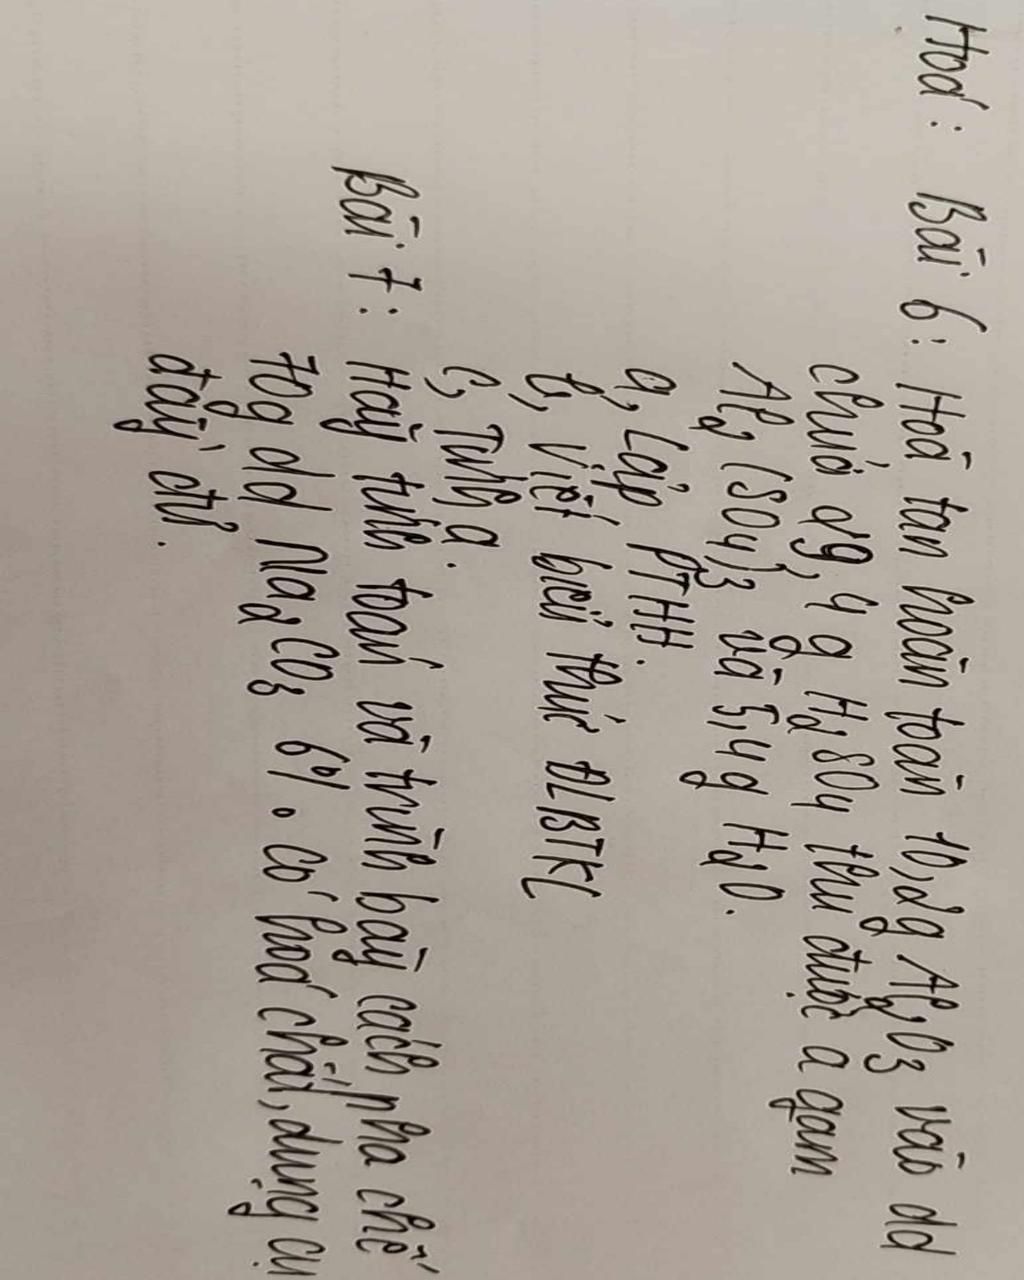 Hoá: Bài 6: Hoà tan hoàn toàn 10,2g Al₂O₃ vào dd
chứa 29,4 g H₂SO₄ thu được a gam
Al₂(SO₄)₃ và 5,4g H₂O.
a, Lập PTHH.
b, Viết biểu thức ĐLBTKL
c, Tính a.
Bài 7: Hãy tính toán và trình bày cách pha chế
70g dd Na₂CO₃ 6%. Có hoá chất, dụng cụ
đầy đủ.